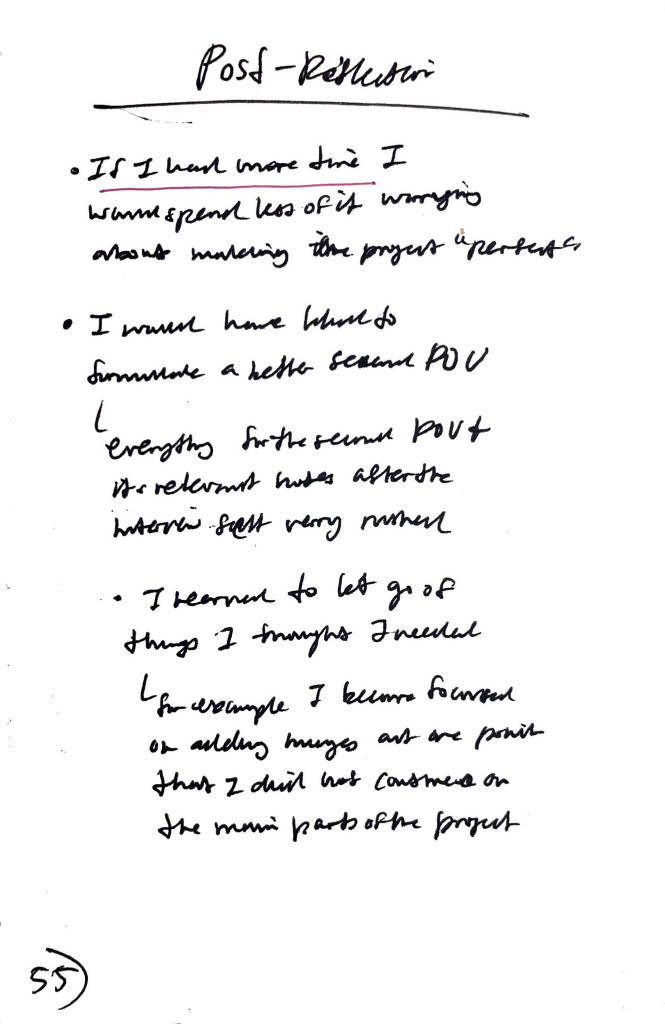 Post-Reflection
• If I had more time I
would spend less of it worrying
about making the project "perfect"
• I would have liked to
formulate a better second POV
everything for the second POV +
its relevant notes after the
interview felt very rushed
• I learned to let go of
things I thought I needed
for example I became focused
on adding images at one point
that I did not construct on
the main parts of the project
55)